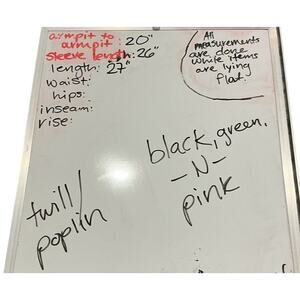 armpit to
armpit: 20"
sleeve length: 26"
length: 27"
waist:
hips:
inseam:
rise:
All
measurements
are done
while items
are lying
flat.
black, green,
-N-
pink
twill/
poplin